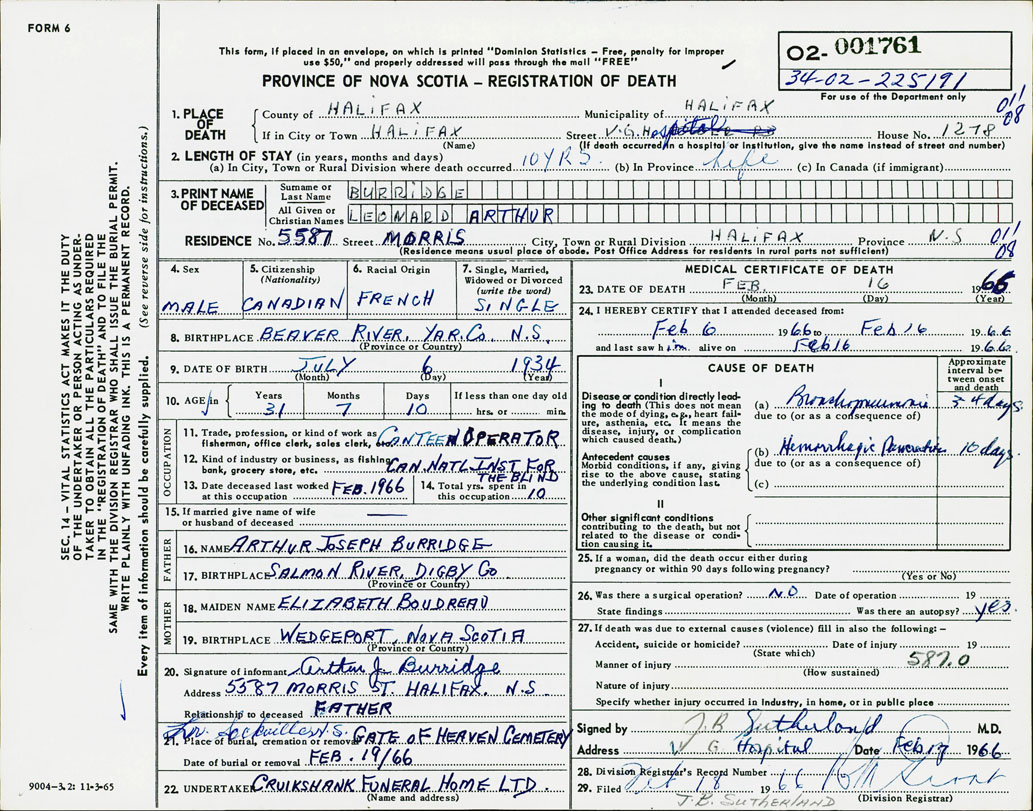 FORM 6
This form, if placed in an envelope, on which is printed "Dominion Statistics – Free, penalty for improper
use $50," and properly addressed will pass through the mail "FREE"
O2- 001761
34-02-225191
For use of the Department only
PROVINCE OF NOVA SCOTIA – REGISTRATION OF DEATH
011
08
1. PLACE OF DEATH County of HALIFAX Municipality of HALIFAX
If in City or Town HALIFAX Street V.G. Hospital House No. 1278
(Name) (If death occurred in a hospital or institution, give the name instead of street and number)
2. LENGTH OF STAY (in years, months and days)
(a) In City, Town or Rural Division where death occurred 10 YRS. (b) In Province life (c) In Canada (if immigrant)
3. PRINT NAME OF DECEASED Surname or Last Name BURRIDGE
All Given or Christian Names LEONARD ARTHUR
RESIDENCE No. 5587 Street MORRIS City, Town or Rural Division HALIFAX Province N.S
011
08
(Residence means usual place of abode. Post Office Address for residents in rural parts not sufficient)
4. Sex MALE
5. Citizenship (Nationality) CANADIAN
6. Racial Origin FRENCH
7. Single, Married, Widowed or Divorced (write the word) SINGLE
8. BIRTHPLACE BEAVER RIVER, YAR. CO. N.S.
(Province or Country)
9. DATE OF BIRTH JULY 6 1934
(Month) (Day) (Year)
10. AGE in Years Months Days If less than one day old
31 7 10 hrs. or min.
OCCUPATION
11. Trade, profession, or kind of work as fisherman, office clerk, sales clerk, CANTEEN OPERATOR
12. Kind of industry or business, as fishing, bank, grocery store, etc. CAN. NATL INST FOR THE BLIND
13. Date deceased last worked at this occupation FEB. 1966
14. Total yrs. spent in this occupation 10
15. If married give name of wife or husband of deceased —
FATHER
16. NAME ARTHUR JOSEPH BURRIDGE
17. BIRTHPLACE SALMON RIVER, DIGBY CO
(Province or Country)
MOTHER
18. MAIDEN NAME ELIZABETH BOUDREAU
19. BIRTHPLACE WEDGEPORT, NOVA SCOTIA
(Province or Country)
20. Signature of informant Arthur J. Burridge
Address 5587 MORRIS ST. HALIFAX. N.S
Relationship to deceased FATHER
Sackville N.S.
21. Place of burial, cremation or removal GATE OF HEAVEN CEMETERY
Date of burial or removal FEB. 19/66
22. UNDERTAKER CRUIKSHANK FUNERAL HOME LTD.
(Name and address)
MEDICAL CERTIFICATE OF DEATH
23. DATE OF DEATH FEB. 16 1966
(Month) (Day) (Year)
24. I HEREBY CERTIFY that I attended deceased from:
Feb 6 1966 to Feb 16 1966
and last saw him alive on Feb 16 1966
CAUSE OF DEATH
Approximate interval between onset and death
I
Disease or condition directly leading to death (This does not mean the mode of dying, e.g., heart failure, asthenia, etc. It means the disease, injury, or complication which caused death.)
(a) Bronchopneumonia 3-4 days.
due to (or as a consequence of)
Antecedent causes
Morbid conditions, if any, giving rise to the above cause, stating the underlying condition last.
(b) Hemorrhagic Pancreatitis 10 days.
due to (or as a consequence of)
(c)
II
Other significant conditions
contributing to the death, but not related to the disease or condition causing it.
25. If a woman, did the death occur either during pregnancy or within 90 days following pregnancy?
(Yes or No)
26. Was there a surgical operation? NO Date of operation 19
State findings Was there an autopsy? yes.
27. If death was due to external causes (violence) fill in also the following:–
Accident, suicide or homicide? Date of injury 19
(State which) 587.0
Manner of injury
(How sustained)
Nature of injury
Specify whether injury occurred in Industry, in home, or in public place
Signed by J. B. Sutherland M.D.
Address V G Hospital Date Feb 17 1966
28. Division Registrar's Record Number
29. Filed Feb 18 1966
(Division Registrar)
J.B. SUTHERLAND
SEC. 14 – VITAL STATISTICS ACT MAKES IT THE DUTY
OF THE UNDERTAKER OR PERSON ACTING AS UNDER-
TAKER TO OBTAIN ALL THE PARTICULARS REQUIRED
IN THE "REGISTRATION OF DEATH" AND TO FILE THE
SAME WITH THE DIVISION REGISTRAR WHO SHALL ISSUE THE BURIAL PERMIT.
WRITE PLAINLY WITH UNFADING INK. THIS IS A PERMANENT RECORD.
Every item of information should be carefully supplied. (See reverse side for instructions.)
9004-3.2: 11-3-65